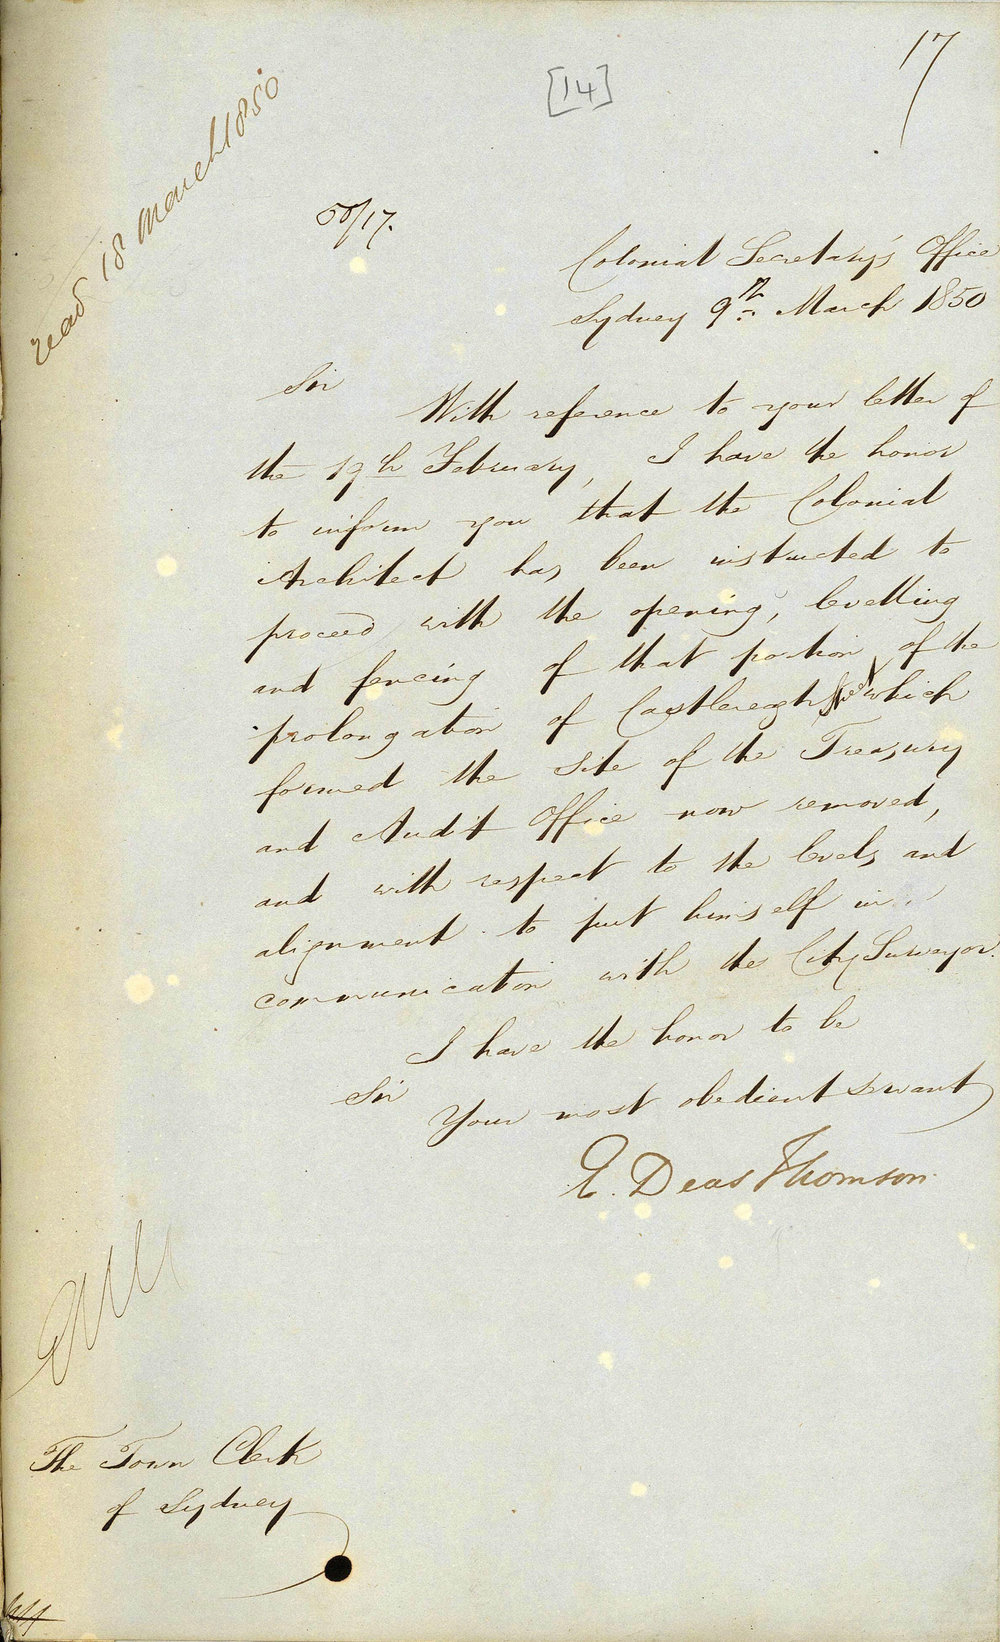 17
[14]
read 18 March 1850
50/17.
Colonial Secretary's Office
Sydney 9th March 1850
Sir
With reference to your letter of
the 19th February, I have the honor
to inform you that the Colonial
Architect has been instructed to
proceed with the opening, levelling
and fencing of that portion of the
prolongation of Castlereagh Street which
formed the site of the Treasury
and Audit Office now removed,
and with respect to the levels and
alignment to put himself in
communication with the City Surveyor.
I have the honor to be
Sir
Your most obedient servant
E. Deas Thomson
The Town Clerk
of Sydney